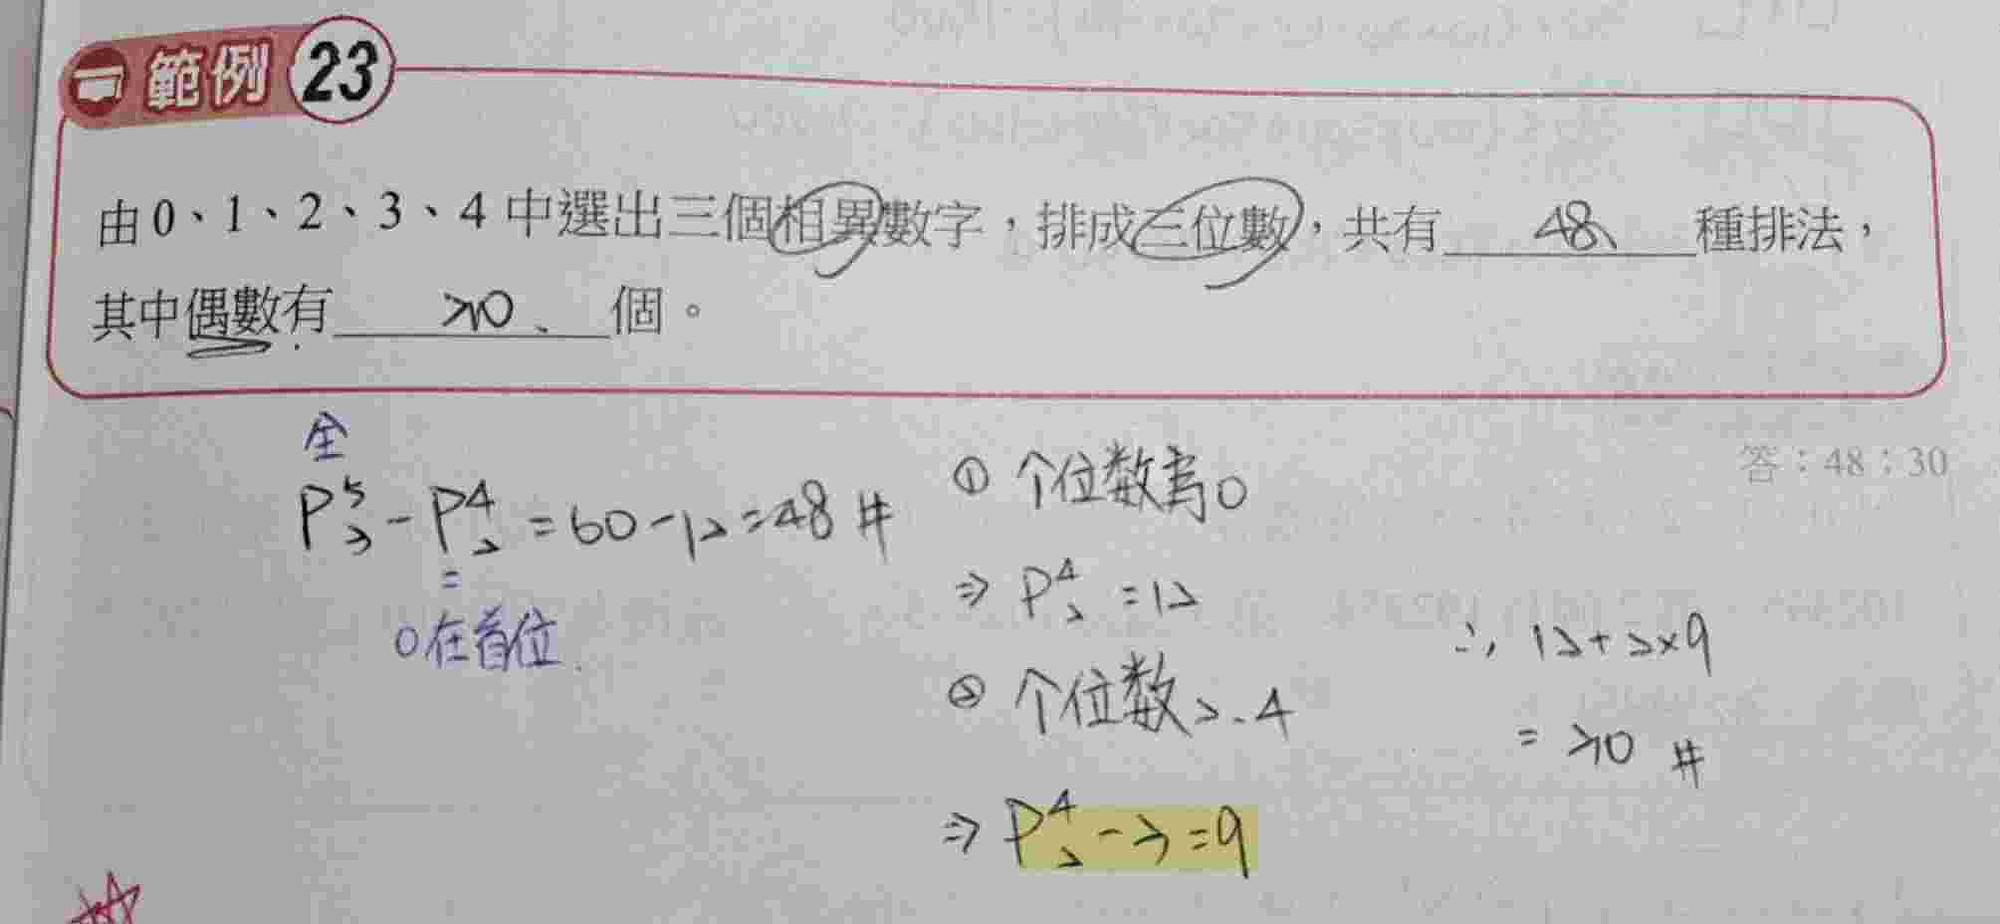 範例 23
由 0、1、2、3、4 中選出三個相異數字，排成三位數，共有 48 種排法，
其中偶數有 30 個。
答：48；30
全
P⁵₃ - P⁴₂ = 60 - 12 = 48 #
0在首位
① 个位数為0
⇒ P⁴₂ = 12
② 个位数2.4
⇒ P⁴₂ - 3 = 9
∴ 12 + 2×9
= 30 #